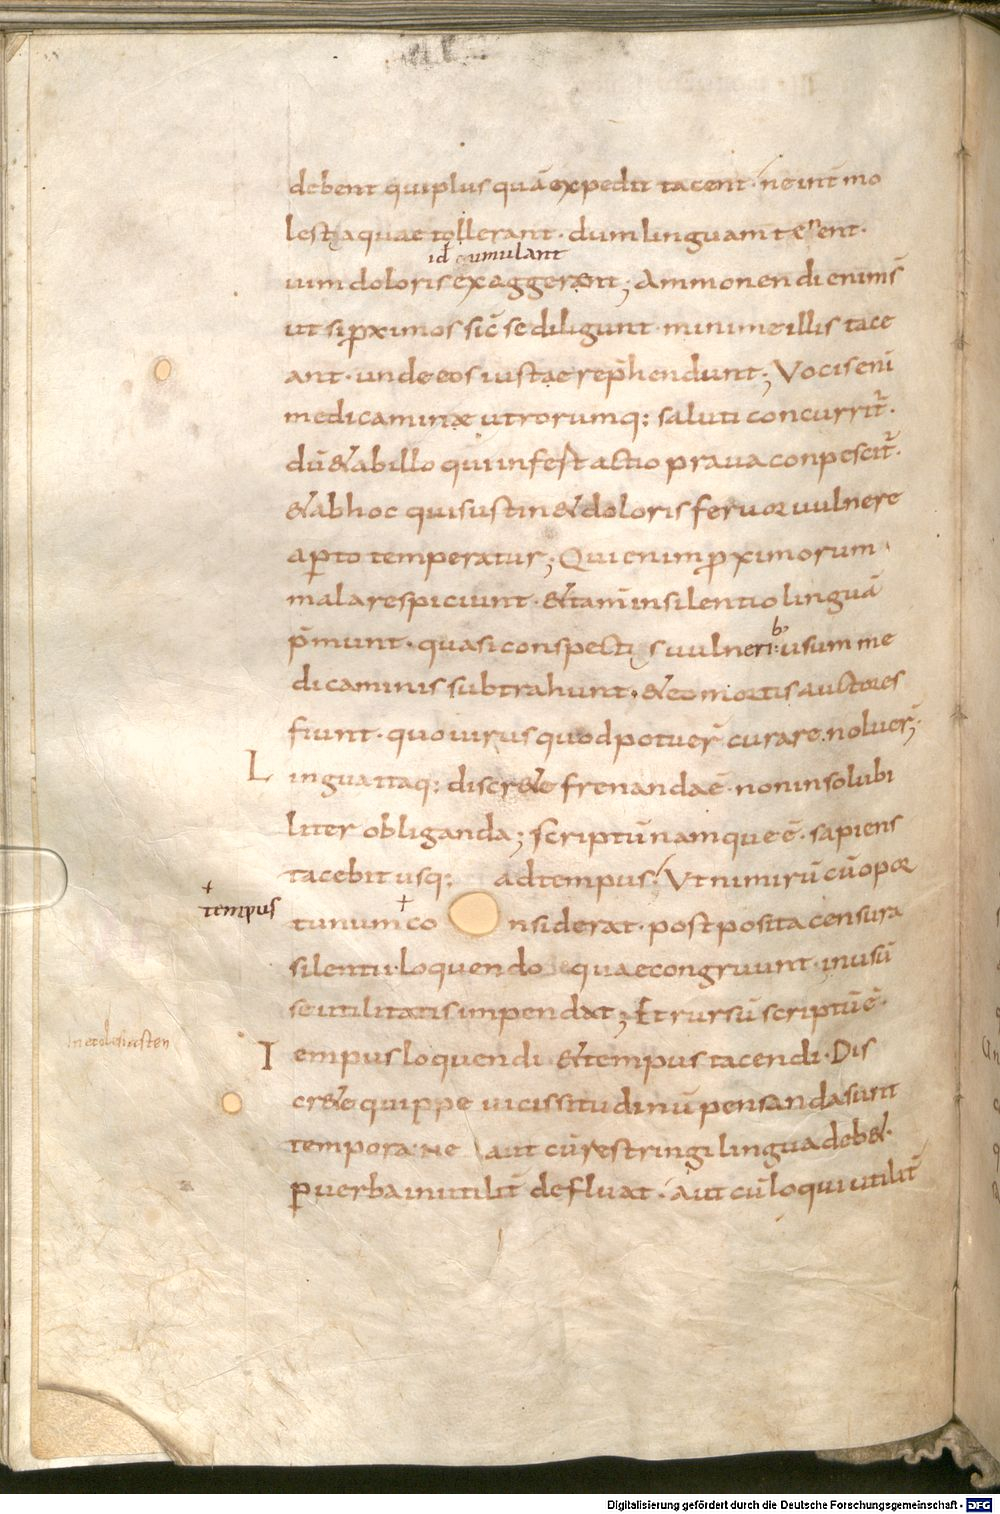 debent qui plus quā expedit tacent· ne int̄ mo
lesta quae tollerant· dum linguam tenent·
id cumulant
uim doloris exaggerent; Ammonendi enim s̄
ut si ꝓximos sic̄ se diligunt· minime illis tace
ant· unde eos iustae rep̄hendunt; Vocis eni
medicamine utrorumq: saluti concurrit̄·
dū & ab illo qui infest actio praua conpescit̄·
& ab hoc qui sustin& doloris feruor uulnere
aꝑto temperatur; Qui enim ꝓximorum
mala respiciunt· & tam̄ in silentio linguā
p̄munt· quasi conspectis uulnerib: usum me
dicaminis subtrahunt· & eo mortis auctores
fiunt· quo uirus quod potuer̄ curare noluer̄;
Lingua itaq: discr&e frenanda ē· non insolubi
liter obliganda; scriptū namque ē· sapiens
tacebit usq: ad tempus· Ut nimirū cū opor
+ tempus
tunum + considerat· postposita censura
silentii· loquendo quae congruunt· in usū
se utilitatis impendat; Et rursū scriptū ē·
In ecclesiasten
Tempus loquendi & tempus tacendi· Dis
cr&e quippe uicissitudinū pensanda sunt
tempora· Ne aut cū restringi lingua deb&·
ꝑ uerba inutilit̄ defluat· Aut cū loqui utilit̄
Digitalisierung gefördert durch die Deutsche Forschungsgemeinschaft - DFG